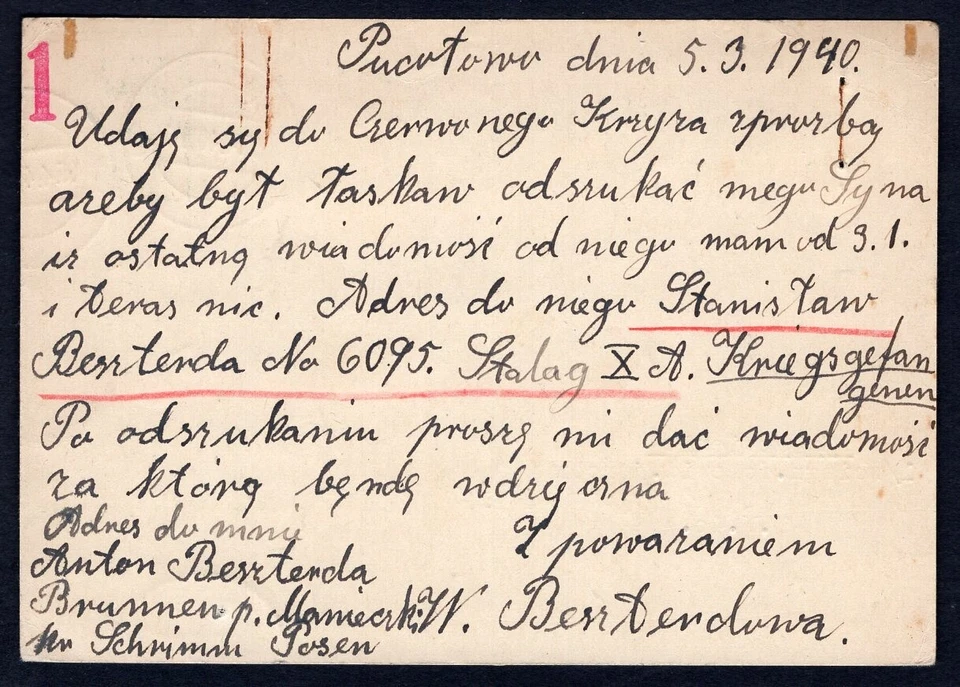 1
Pucołowo dnia 5.3.1940.
Udaję sę do Czerwonego Krzyza zprozbą
azeby był łaskaw odszukać mego Syna
iz ostatnę wiadomość od niego mam od 3.1.
i teras nic. Adres do niego Stanisław
Beszterda No 6095. Stalag X A. Kriegsgefan
genen
Po odszukaniu proszę mi dać wiadomość
za którę będę wdzięczna
Adres do mnie
Z powazaniem
Anton Beszterda
Brunnen p. Manieczki W. Beszterdowa.
kr Schrimm Posen